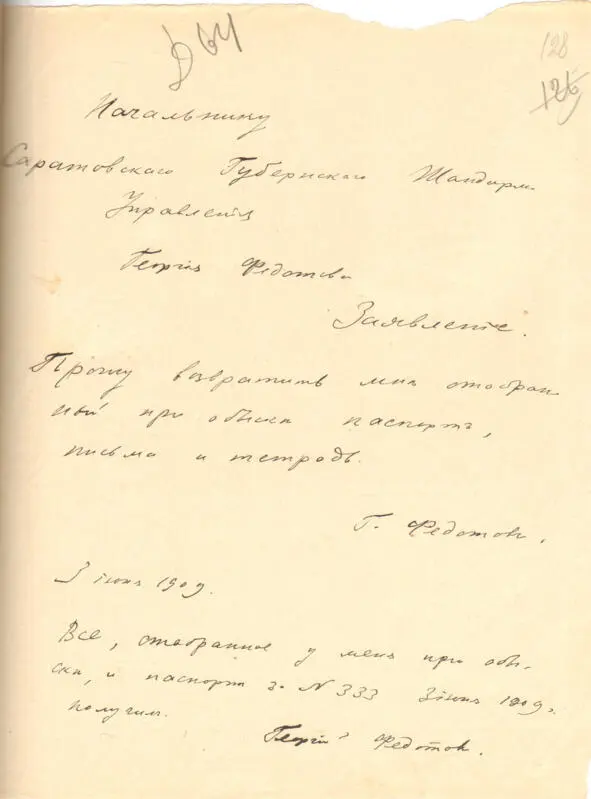 д 64
128
126
Начальнику
Саратовскаго Губернскаго Жандарм.
Управленія
Георгія Федотова
Заявленіе.
Прошу возвратить мнѣ отобран
ный при обыскѣ паспортъ,
письма и тетрадь.
Г. Федотов.
3 іюня 1909.
Все, отобранное у меня при обы-
скѣ, и паспорт за № 333 3 іюня 1909 г.
получил.
Георгій Федотов.